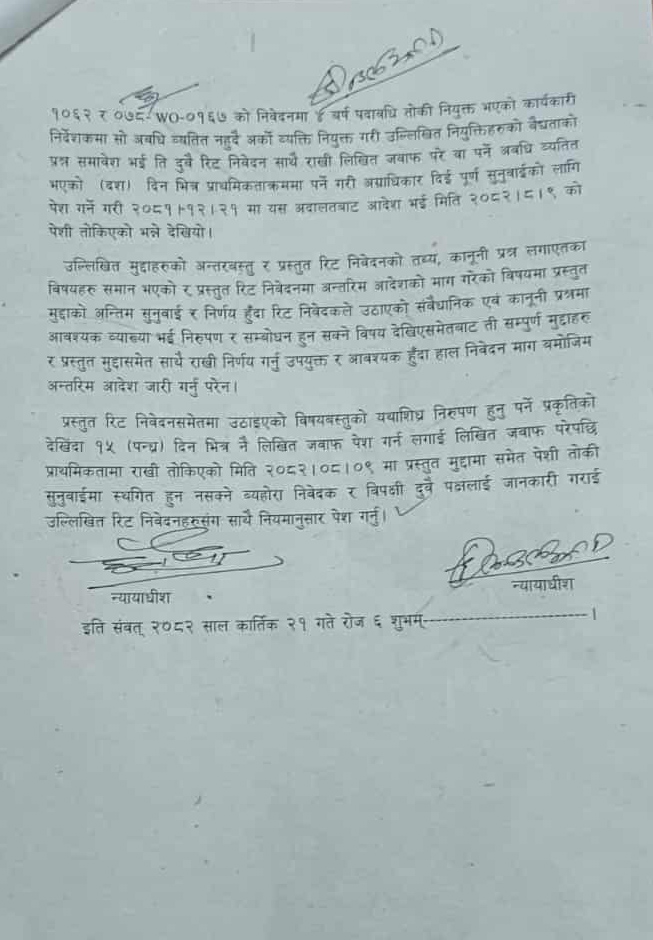 १०६२ र ०७८-WO-०१६७ को निवेदनमा ४ बर्ष पदाबधि तोकी नियुक्त भएको कार्यकारी
निर्देशकमा सो अबधि व्यतित नहुदै अर्को व्यक्ति नियुक्त गरी उल्लिखित नियुक्तिहरुको बैद्यताको
प्रश्न समावेश भई ति दुवै रिट निवेदन साथै राखी लिखित जवाफ परे वा पर्ने अबधि व्यतित
भएको (दश) दिन भित्र प्राथमिकताक्रममा पर्ने गरी अग्राधिकार दिई पूर्ण सुनुवाईको लागि
पेश गर्ने गरी २०८१।१२।२१ मा यस अदालतबाट आदेश भई मिति २०८२।८।९ को
पेशी तोकिएको भन्ने देखियो।
उल्लिखित मुद्दाहरुको अन्तरबस्तु र प्रस्तुत रिट निवेदनको तथ्य, कानूनी प्रश्न लगाएतका
बिषयहरु समान भएको र प्रस्तुत रिट निवेदनमा अन्तरिम आदेशको माग गरेको बिषयमा प्रस्तुत
मुद्दाको अन्तिम सुनुवाई र निर्णय हुँदा रिट निवेदकले उठाएको संबैधानिक एवं कानूनी प्रश्नमा
आबश्यक ब्याख्या भई निरुपण र सम्बोधन हुन सक्ने विषय देखिएसमेतबाट ती सम्पुर्ण मुद्दाहरु
र प्रस्तुत मुद्दासमेत साथै राखी निर्णय गर्नु उपयुक्त र आबश्यक हुँदा हाल निवेदन माग बमोजिम
अन्तरिम आदेश जारी गर्नु परेन।
प्रस्तुत रिट निवेदनसमेतमा उठाइएको बिषयबस्तुको यथाशिघ्र निरुपण हुनु पर्ने प्रकृतिको
देखिंदा १५ (पन्ध्र) दिन भित्र नै लिखित जवाफ पेश गर्न लगाई लिखित जवाफ परेपछि
प्राथमिकतामा राखी तोकिएको मिति २०८२।०८।०९ मा प्रस्तुत मुद्दामा समेत पेशी तोकी
सुनुवाईमा स्थगित हुन नसक्ने ब्यहोरा निबेदक र बिपक्षी दुवै पक्षलाई जानकारी गराई
उल्लिखित रिट निवेदनहरुसंग साथै नियमानुसार पेश गर्नु।
न्यायाधीश
न्यायाधीश
इति संबत् २०८२ साल कार्तिक २१ गते रोज ६ शुभम्--------------------------।